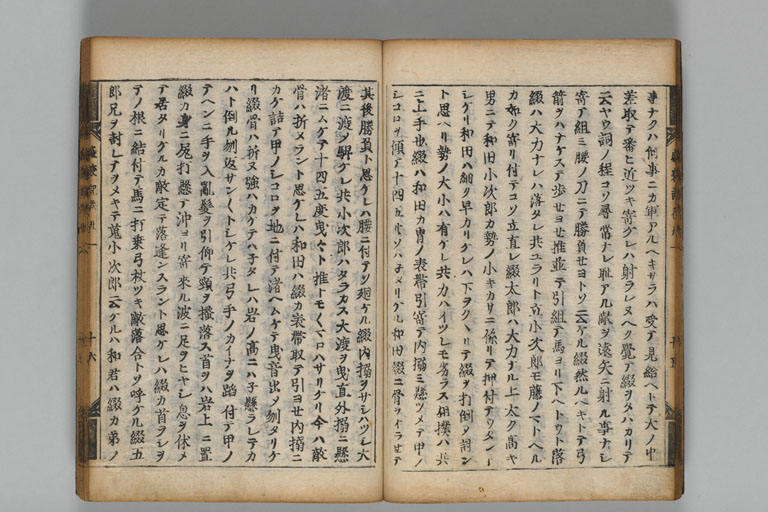 事ナクハ何事ニカ軍アルヘキサラハ受テ見給ヘトテ大ノ中
差取テ番ヒ近ツキ寄ケレハ射ラレヌヘク覺テ綴ヲタハカリテ
云ヤウ詞ノ程コソ尋常ナレ恥アル敵ヲ遠矢ニ射ル事ナシ
寄テ組ミ腰ノ刀ニテ勝負セヨトソ云ケル綴然ルヘキトテ弓
箭ヲハナケステ歩セヨセ推並テ引組テ馬ヨリ下ヘトウト落
綴ハ大力ナレハ落タレ共ユラリト立小次郎モ藤ノマトヘル
カ如ク寄リ付テコソ立直レ綴太郎ハ大力ナル上太ク高キ
男ニテ和田小次郎カ勢ノ小キカサニ係リテ押付テウタント
シケリ和田ハ細ク早カリケレハ下ヲクヽリテ綴ヲ打倒テ討ン
ト思ヘリ勢ノ大小ハ有ケレ共力ハイツレモ劣ラス相撲ハ共
ニ上手也綴ハ和田カ冑ノ表帶引寄テ内搦ニ懸ツメテ甲ノ
シコロヲ傾テ十四五ソハ子メリケル和田綴ニ骨ヲイラセテ
其後勝負ト思ケレハ腰ニ付テソ廻ケル綴内搦ヲサシハツシ大
渡ニ渡ノ駻ケレ共小次郎ハタラカス大渡ヲ曳直外搦ニ懸
渚ニムケテ十四五度曳々ト推トモ々々マロハサリケリ今ハ敵
骨ハ折メラント思ケレハ和田ハ綴カ表帶取テ引ヨセ内搦ニ
カケ詰テ甲ノシコロヲ地ニ付テ渚ヘムケテ曳音出メ刎タリケ
リ綴骨ハ折ヌ強ハカケテハ子タレハ岩ノ高ニハ子懸ラレテカ
ハト倒ル刎返サンヽヽトシケレ共弓手ノカイナヲ蹈付テ甲ノ
テヘンニ手ヲ入亂髮ヲ引仰テ頸ヲ搔落ス首ヲハ岩上ニ置
綴カ身ニ尻打懸テ沖ヨリ寄來ル波ニ足ヲヒヤシ息ヲ休メ
テ居タリケルカ敵定テ落逢ンスラント思ケレハ綴カ首ヲシヲ
テノ根ニ結付テ馬ニ打乘弓杖ツキ敵落合トソ呼ケル綴五
郎兄ヲ討レテヲメキテ蒐小次郎云ケルハ和君ハ綴カ弟ノ
十六